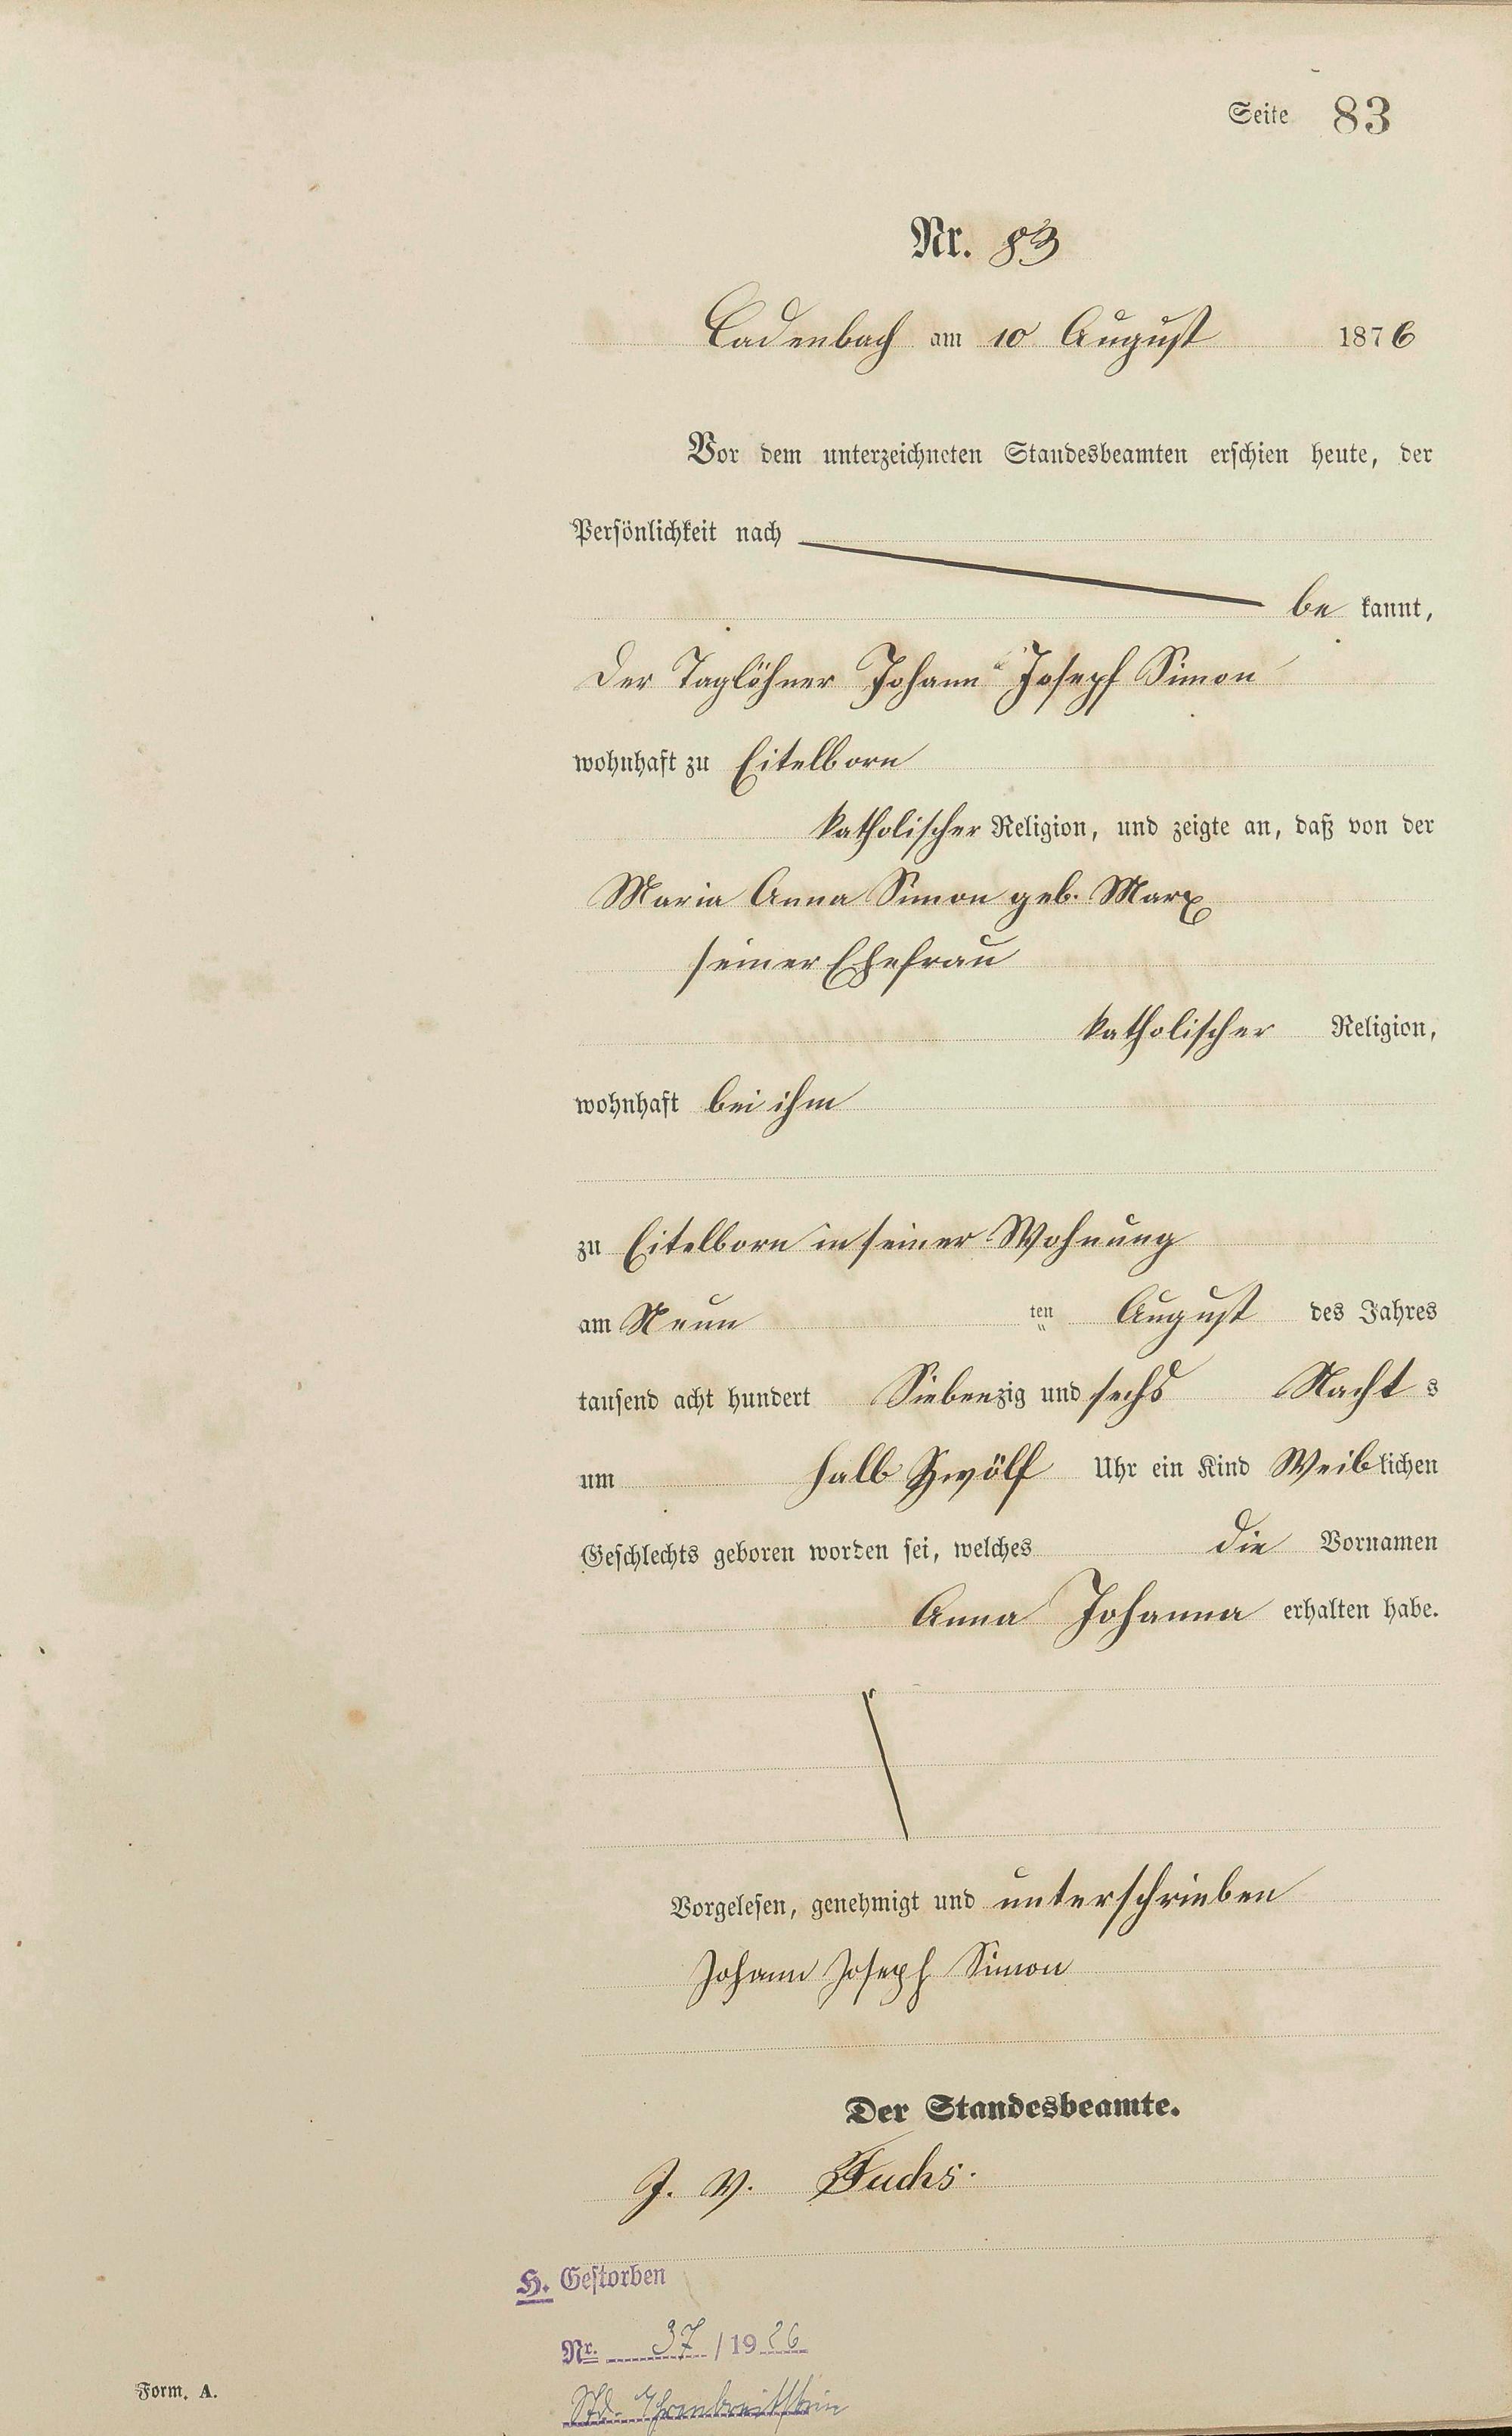 Seite 83
Nr. 83
Cadenbach am 10 August 1876
Vor dem unterzeichneten Standesbeamten erschien heute, der
Persönlichkeit nach
be kannt,
der Taglöhner Johann Joseph Simon
wohnhaft zu Eitelborn
katholischer Religion, und zeigte an, daß von der
Maria Anna Simon geb. Marx
seiner Ehefrau
katholischer Religion,
wohnhaft bei ihm
zu Eitelborn in seiner Wohnung
am Neun ten August des Jahres
tausend acht hundert Siebenzig und sechs Nacht s
um halb Zwölf Uhr ein Kind Weiblichen
Geschlechts geboren worden sei, welches die Vornamen
Anna Johanna erhalten habe.
Vorgelesen, genehmigt und unterschrieben
Johann Joseph Simon
Der Standesbeamte.
J. V. Fuchs.
H. Gestorben
Nr. 37 / 1926
Std. Ehrenbreitstein
Form. A.